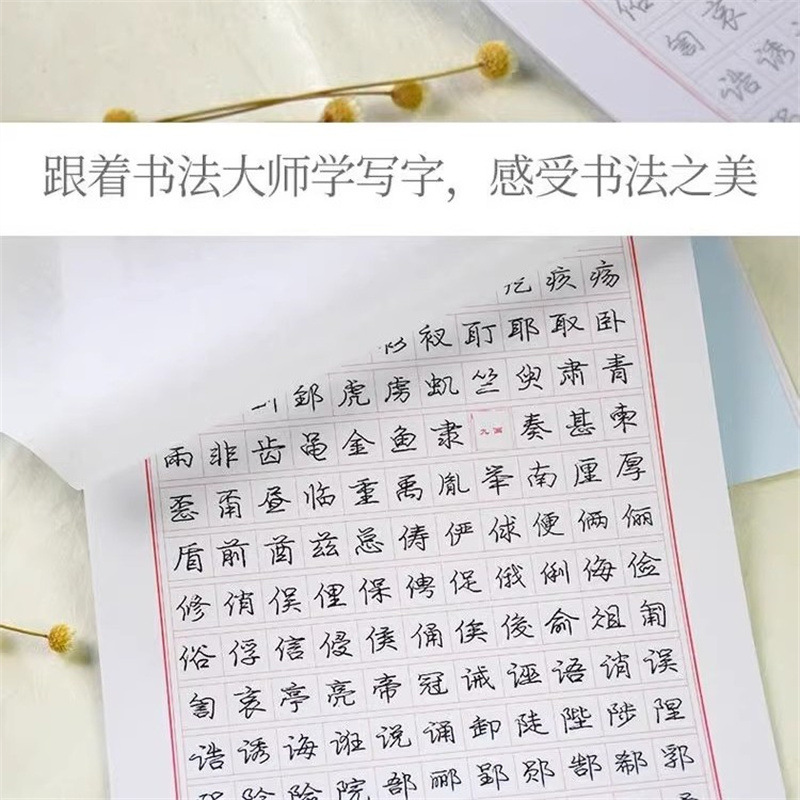 俗
訇哀
诰诱
跟着书法大师学写字，感受书法之美
疙疾疡
衩耵耶取卧
郅虎虏虮竺臾肃青
雨非齿黾金鱼隶九画奏甚柬
恶甭昼临重禹胤举南厘厚
盾前酋兹总俦俨俅便俩俪
修俏俣俚保俜促俄俐侮俭
俗俘信侵侯俑俟俊俞俎匍
訇哀亭亮帝冠诫诬语诮误
诰诱诲诳说诵卸陡陛陟陧
险院郚郦郢郧郜郗郭